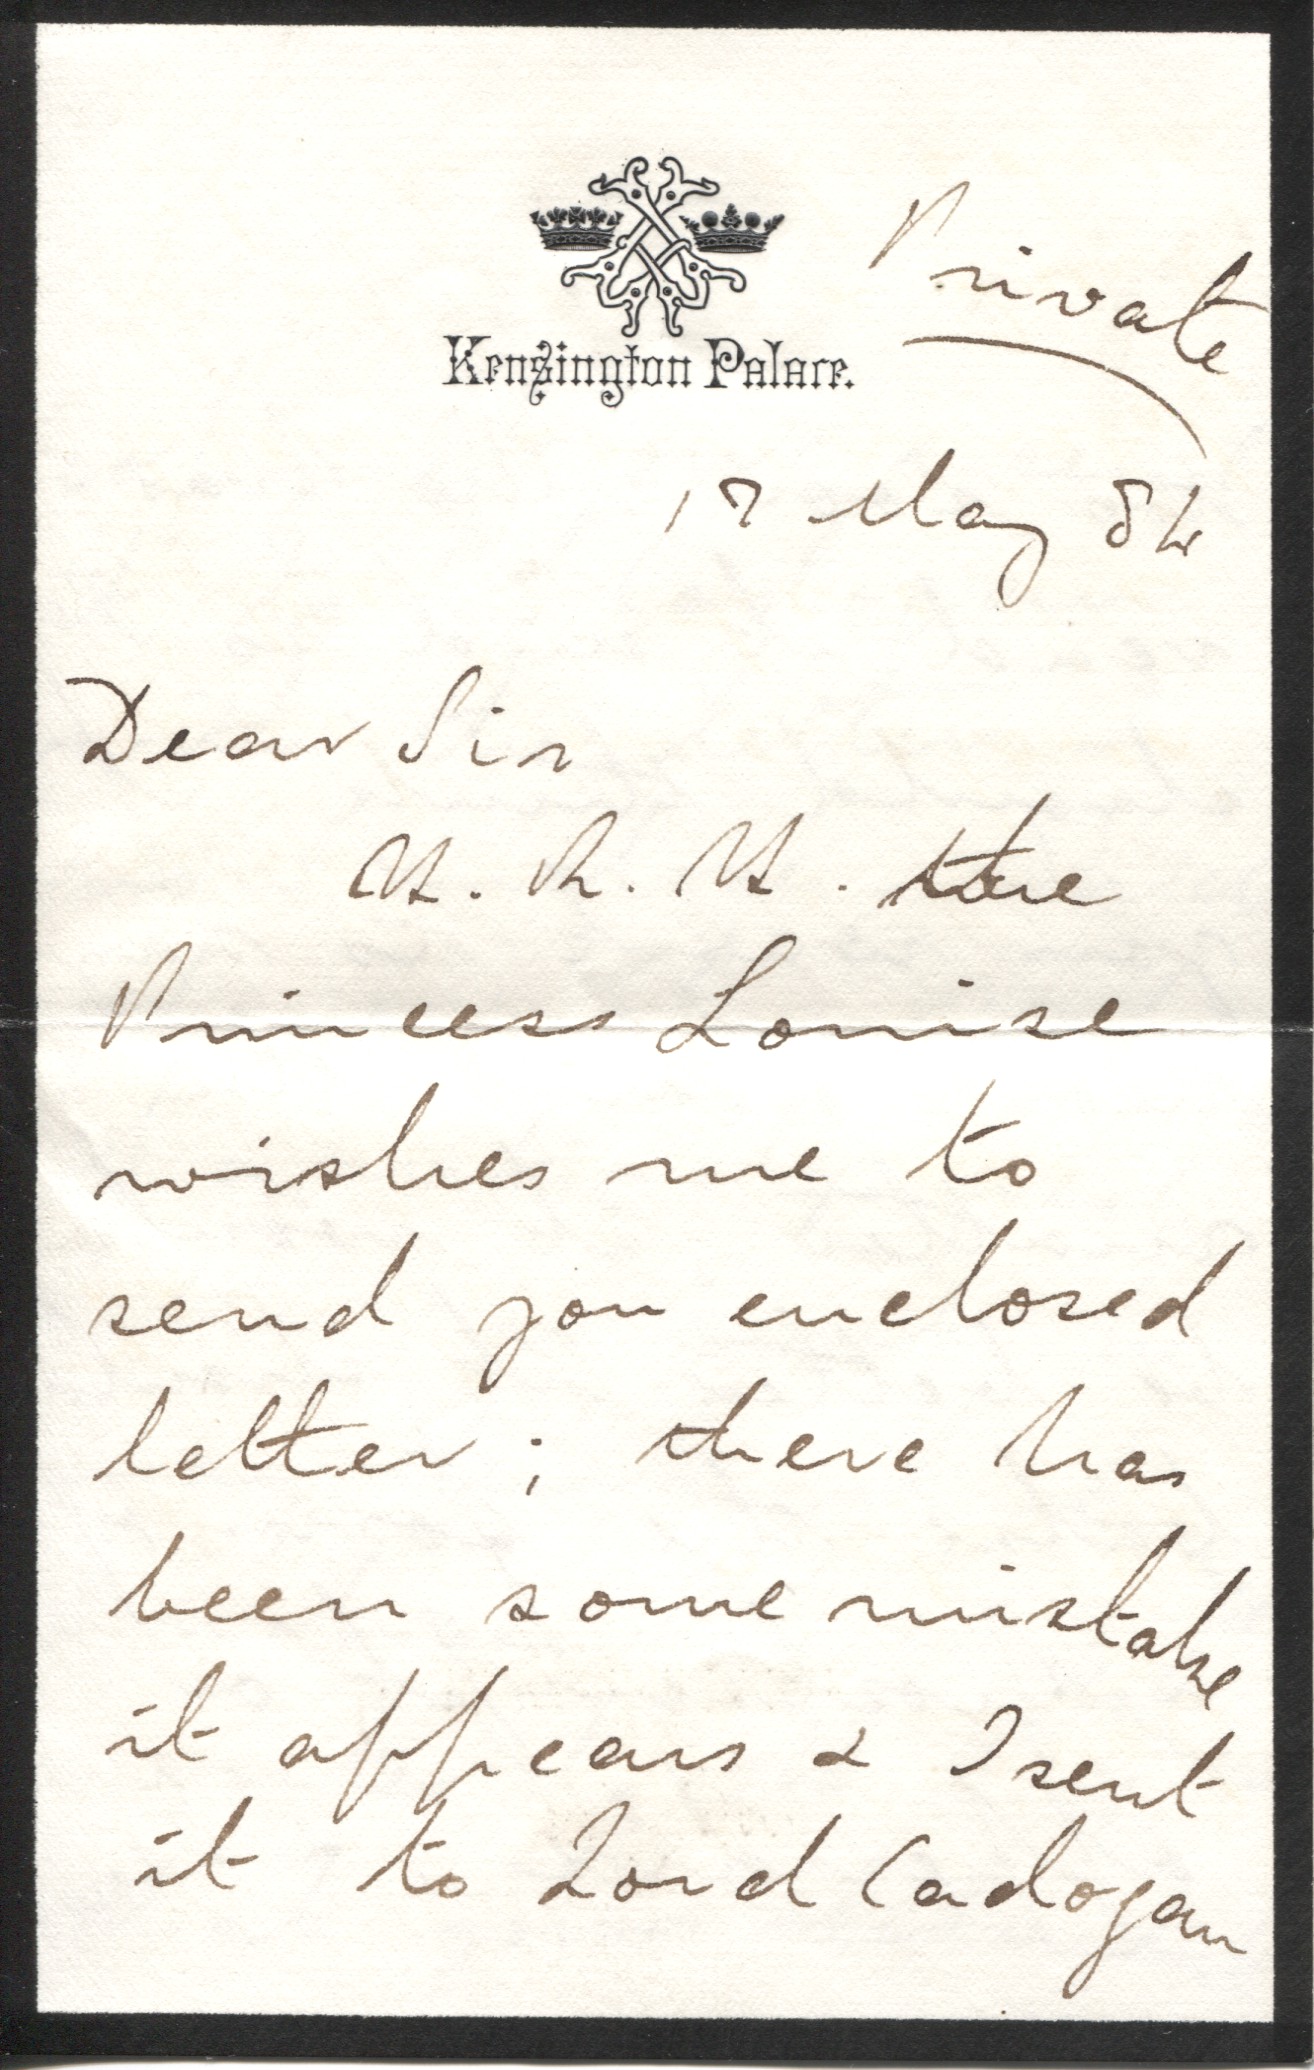 Private
Kensington Palace.
17 May 84
Dear Sir
H. R. H. the
Princess Louise
wishes me to
send you enclosed
letter; there has
been some mistake
it appears & I sent
it to Lord Cadogan